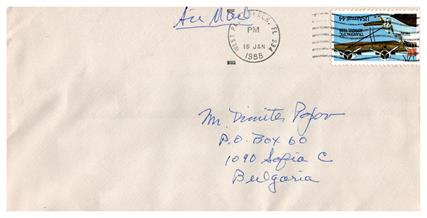 Air Mail
PM
16 JAN
1988
USAirmail 44
Mr. Dimiter Popov
P.O. Box 60
1090 Sofia C
Bulgaria